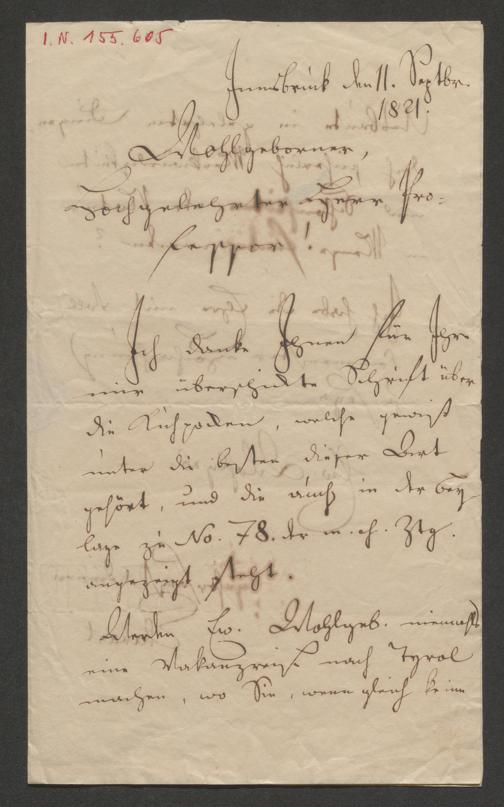 I. N. 155.605
Innsbruck den 11. Septbr.
1821.
Wohlgeborner,
Hochgelehrter Herr Pro-
fessor!
Ich danke Ihnen für Ihre
mir überschickte Schrift über
die Kuhpocken, welche gewiß
unter die besten dieser Art
gehört, und die auch in der Bey-
lage zu No. 78. der m. ch. Ztg.
angezeigt steht.
Werden Ew. Wohlgeb. niemals
eine Vakanzreise nach Tyrol
machen, wo Sie, wenn gleich keine